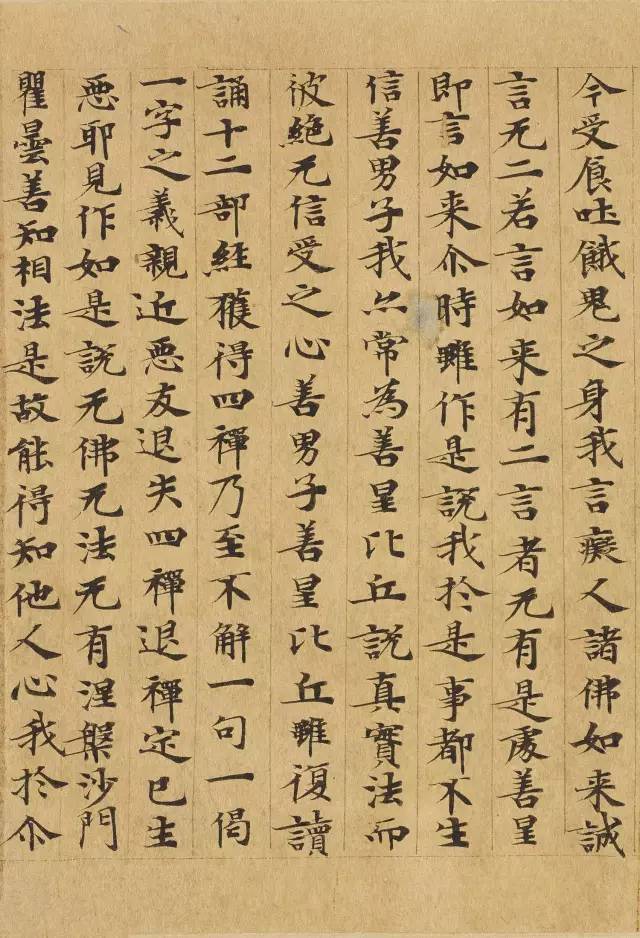 今受食吐餓鬼之身我言癡人諸佛如来誠
言无二若言如来有二言者无有是處善星
即言如来尒時雖作是說我於是事都不生
信善男子我亦常為善星比丘說真實法而
彼絶无信受之心善男子善星比丘雖復讀
誦十二部經獲得四禪乃至不解一句一偈
一字之義親近惡友退失四禪退禪定已生
惡耶見作如是說无佛无法无有涅槃沙門
瞿曇善知相法是故能得知他人心我於尒